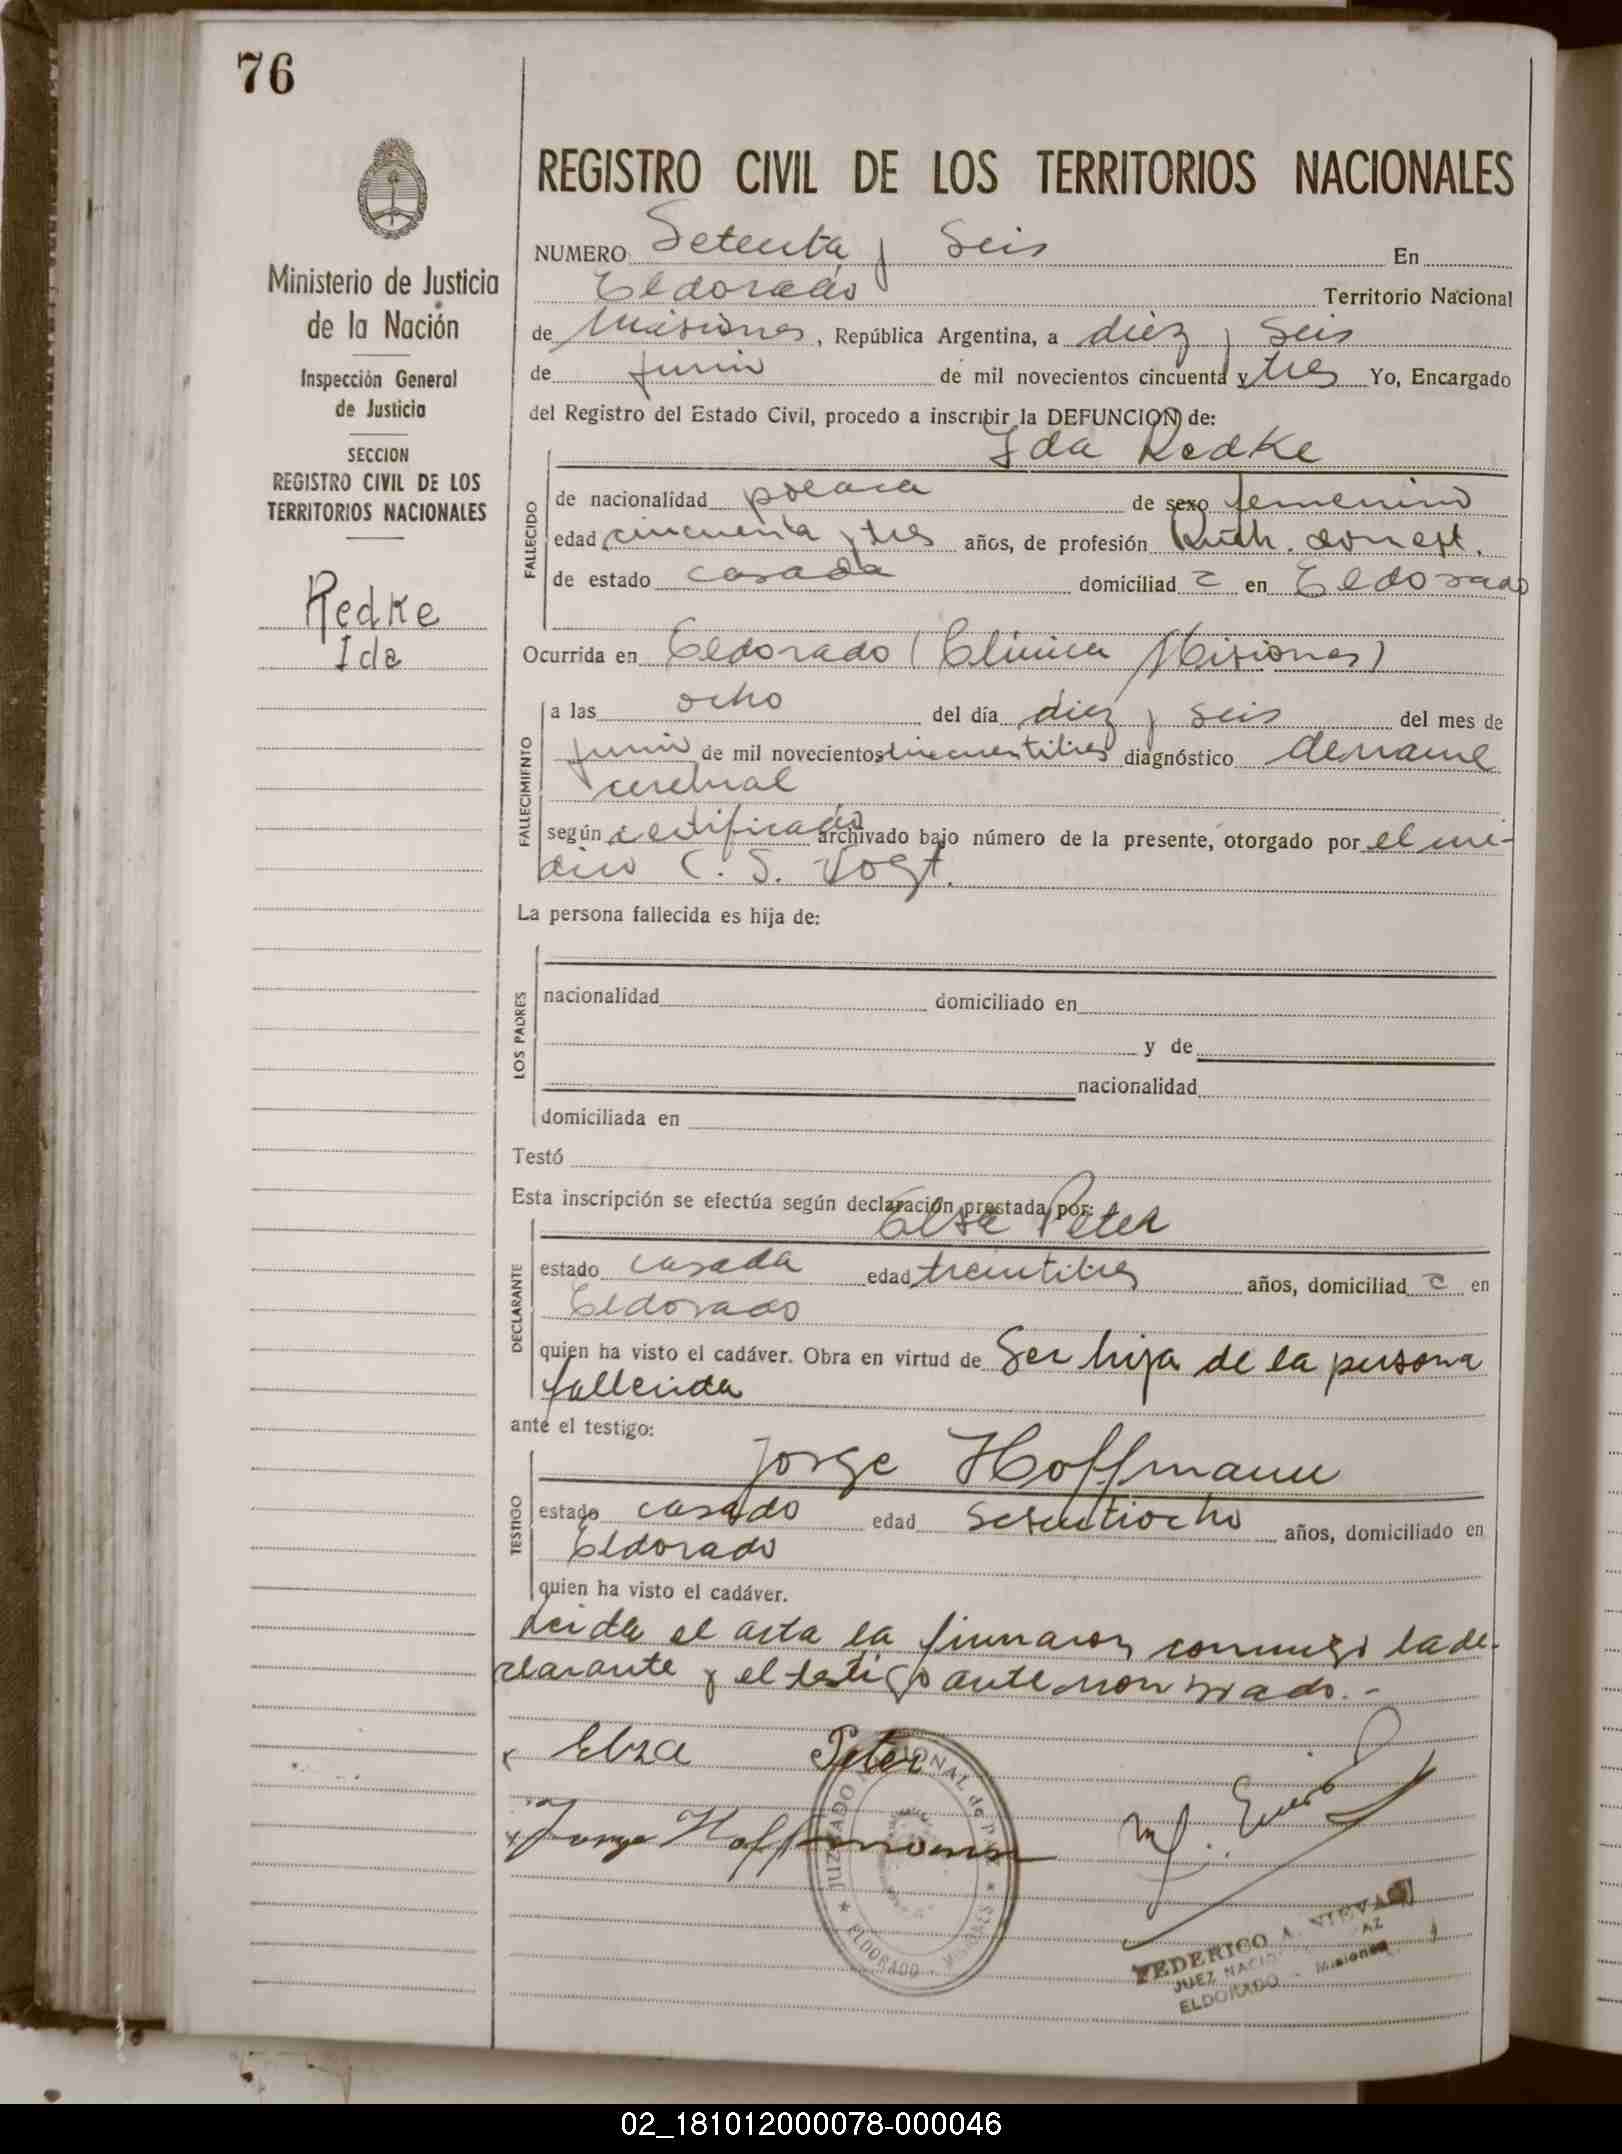 76
REGISTRO CIVIL DE LOS TERRITORIOS NACIONALES
Ministerio de Justicia
de la Nación
Inspección General
de Justicia
SECCION
REGISTRO CIVIL DE LOS
TERRITORIOS NACIONALES
Redke
Ida
NUMERO Setenta y Seis En
Eldorado Territorio Nacional
de Misiones, República Argentina, a diez y seis
de junio de mil novecientos cincuenta y tres Yo, Encargado
del Registro del Estado Civil, procedo a inscribir la DEFUNCION de:
Ida Redke
FALLECIDO
de nacionalidad polaca de sexo femenino
edad cincuenta y tres años, de profesión domest.
de estado casada domiciliad a en Eldorado
Ocurrida en Eldorado (Clinica Misiones)
FALLECIMIENTO
a las ocho del día diez y seis del mes de
junio de mil novecientos cincuentitres diagnóstico derrame
cerebral
según certificado archivado bajo número de la presente, otorgado por el me-
dico C. S. Vogt.
La persona fallecida es hija de:
LOS PADRES
nacionalidad domiciliado en
y de
nacionalidad
domiciliada en
Testó
Esta inscripción se efectúa según declaración prestada por:
Elsa Peter
DECLARANTE
estado casada edad treintitres años, domiciliad a en
Eldorado
quien ha visto el cadáver. Obra en virtud de Ser hija de la persona
fallecida
ante el testigo:
Jorge Hoffmann
TESTIGO
estado casado edad sesentiocho años, domiciliado en
Eldorado
quien ha visto el cadáver.
Leida el acta la firmaron conmigo la de-
clarante y el testigo antenombrado.-
x Elza Peter
x Jorge Hoffmann
JUZGADO NACIONAL de PAZ
ELDORADO - Misiones
FEDERICO A. NIEVA
JUEZ NACIONAL PAZ
ELDORADO - Misiones
02_181012000078-000046